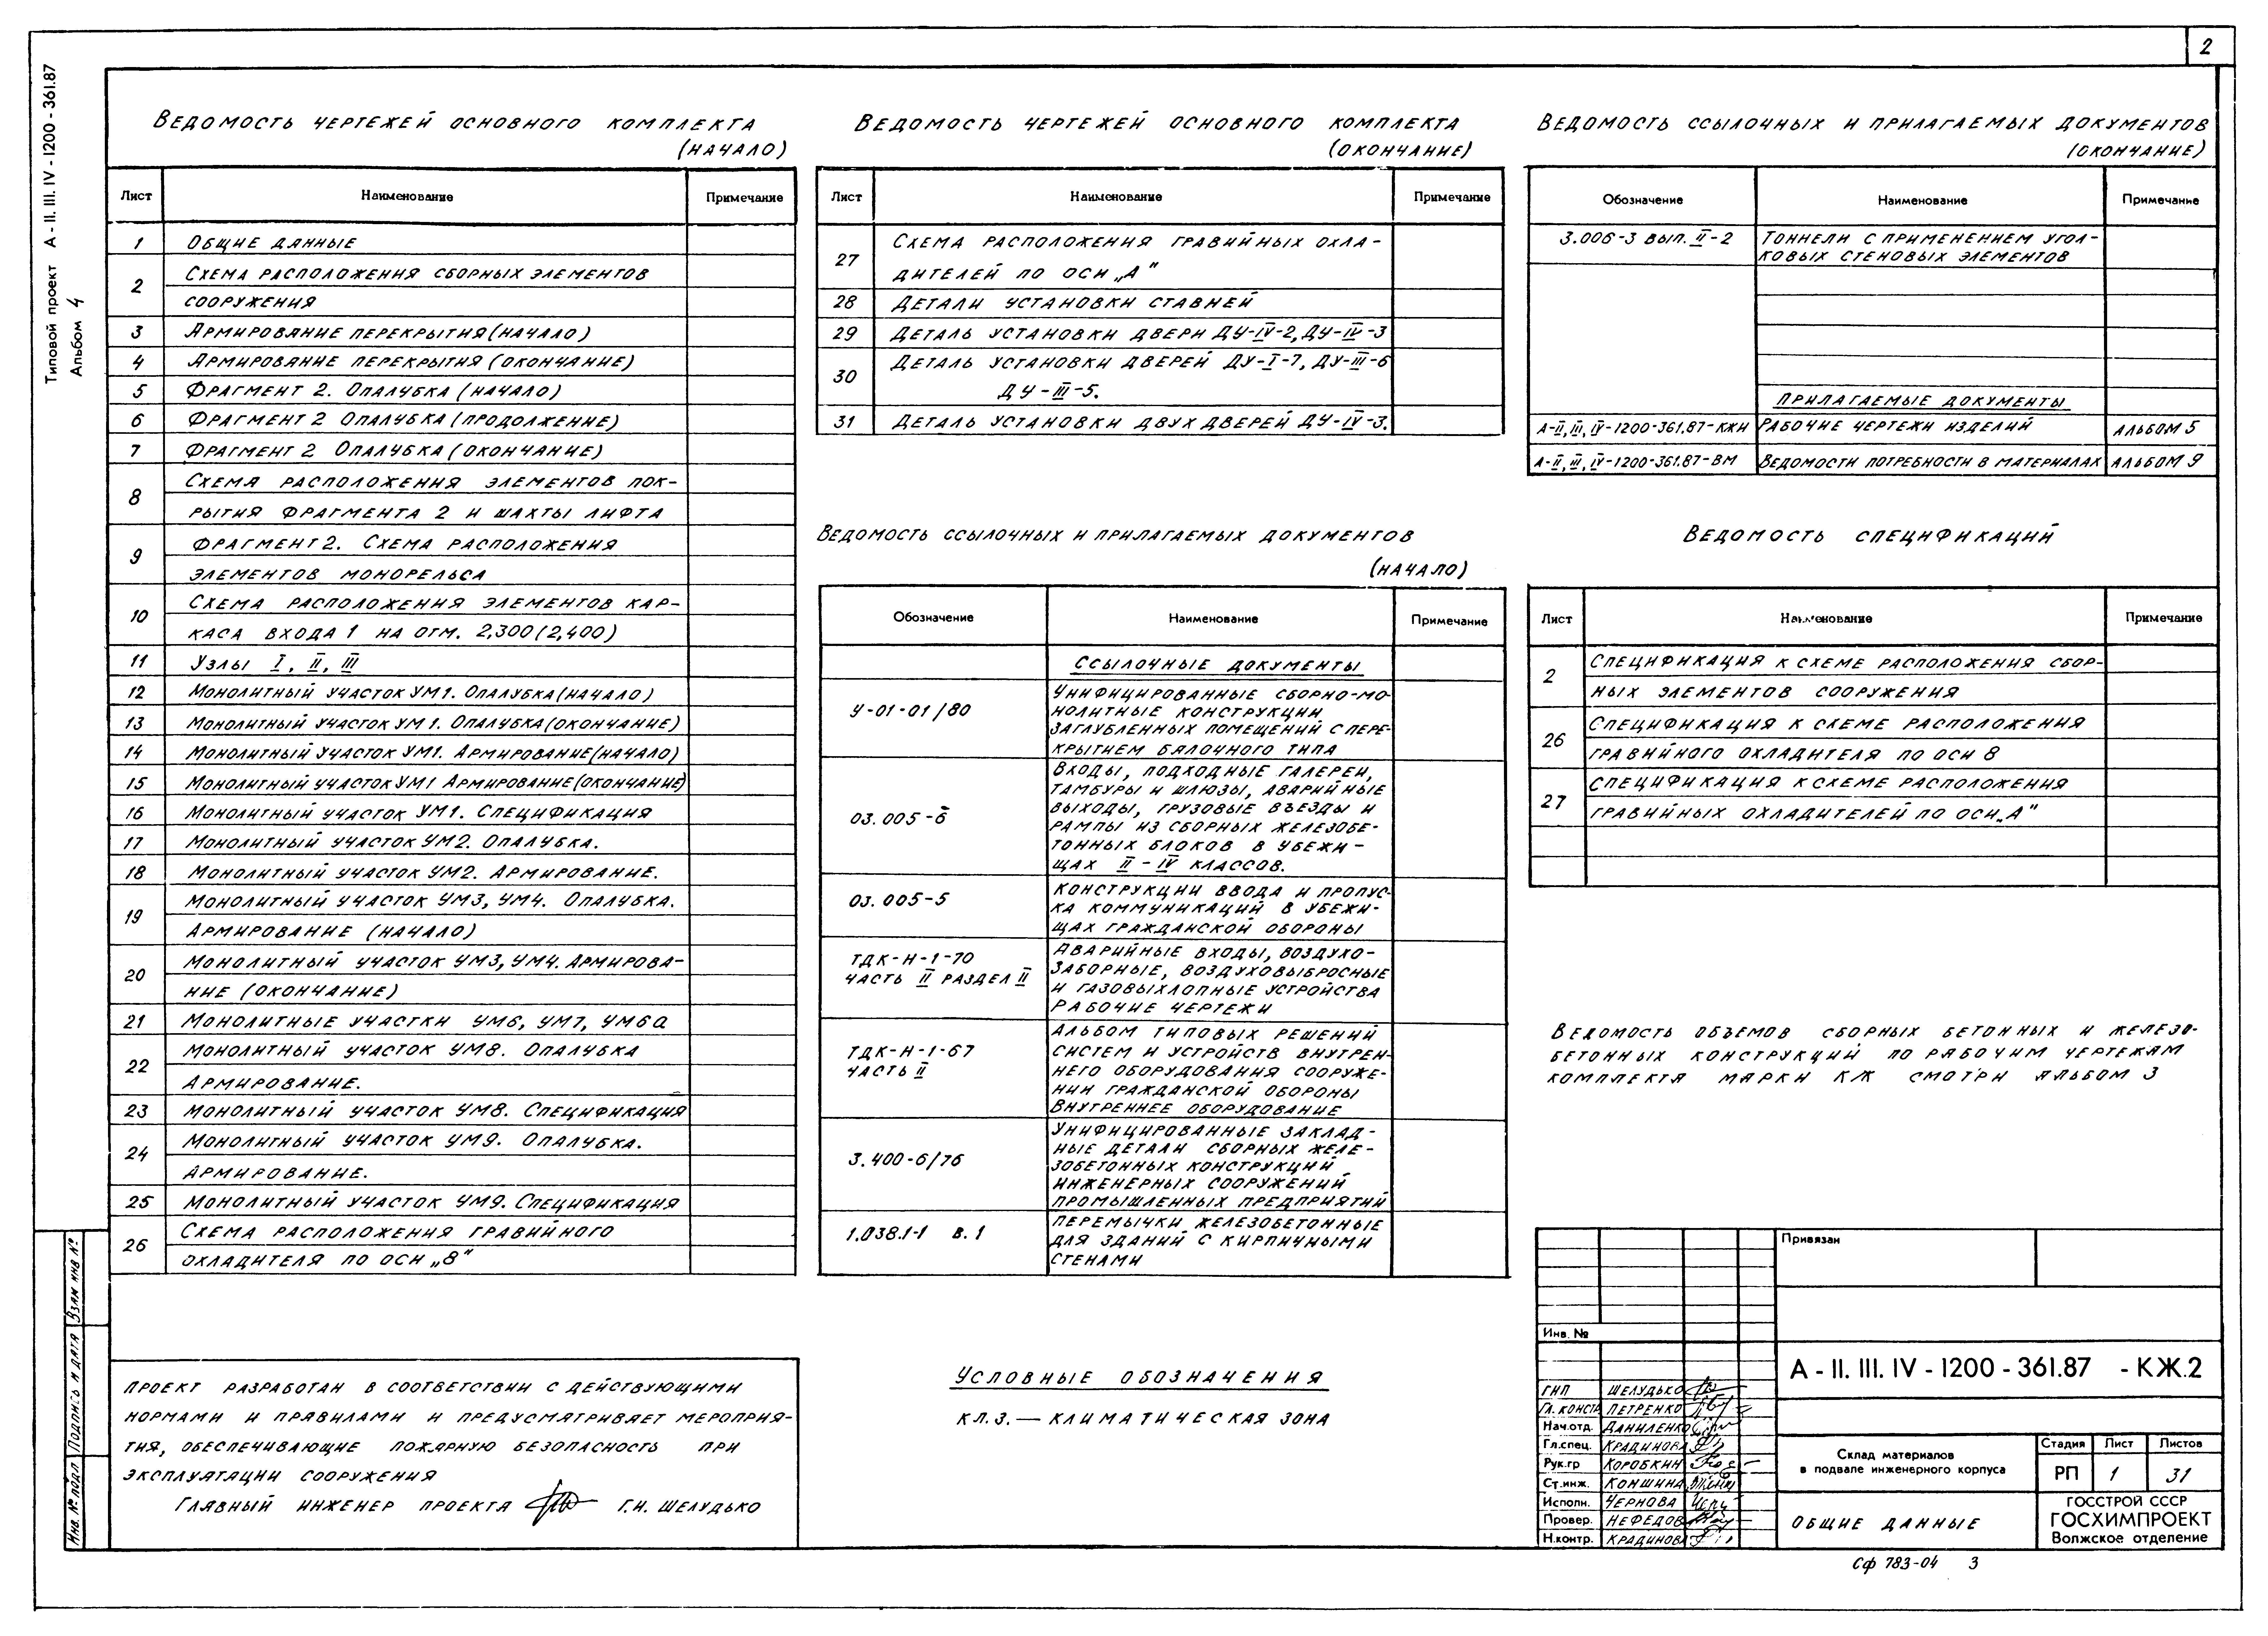 2
Типовой проект А - II. III. IV - 1200 - 361.87
Альбом 4
Ведомость чертежей основного комплекта
(начало)
Лист Наименование Примечание
1 Общие данные
2 Схема расположения сборных элементов
сооружения
3 Армирование перекрытия (начало)
4 Армирование перекрытия (окончание)
5 Фрагмент 2. Опалубка (начало)
6 Фрагмент 2 Опалубка (продолжение)
7 Фрагмент 2 Опалубка (окончание)
8 Схема расположения элементов пок-
рытия фрагмента 2 и шахты лифта
9 Фрагмент 2. Схема расположения
элементов монорельса
10 Схема расположения элементов кар-
каса входа 1 на отм. 2,300 (2,400)
11 Узлы I, II, III
12 Монолитный участок УМ1. Опалубка (начало)
13 Монолитный участок УМ1. Опалубка (окончание)
14 Монолитный участок УМ1. Армирование (начало)
15 Монолитный участок УМ1 Армирование (окончание)
16 Монолитный участок УМ1. Спецификация
17 Монолитный участок УМ2. Опалубка.
18 Монолитный участок УМ2. Армирование.
19 Монолитный участок УМ3, УМ4. Опалубка.
Армирование (начало)
20 Монолитный участок УМ3, УМ4. Армирова-
ние (окончание)
21 Монолитные участки УМ6, УМ7, УМ6а
22 Монолитный участок УМ8. Опалубка
Армирование.
23 Монолитный участок УМ8. Спецификация
24 Монолитный участок УМ9. Опалубка.
Армирование.
25 Монолитный участок УМ9. Спецификация
26 Схема расположения гравийного
охладителя по оси „8"
Ведомость чертежей основного комплекта
(окончание)
Лист Наименование Примечание
27 Схема расположения гравийных охла-
дителей по оси „А"
28 Детали установки ставней
29 Деталь установки двери ДУ-IV-2, ДУ-IV-3
30 Деталь установки дверей ДУ-I-7, ДУ-III-6
ДУ-III-5.
31 Деталь установки двух дверей ДУ-IV-3.
Ведомость ссылочных и прилагаемых документов
(начало)
Обозначение Наименование Примечание
Ссылочные документы
У-01-01/80 Унифицированные сборно-мо-
нолитные конструкции
заглубленных помещений с пере-
крытием балочного типа
03.005-6 Входы, подходные галереи,
тамбуры и шлюзы, аварийные
выходы, грузовые въезды и
рампы из сборных железобе-
тонных блоков в убежи-
щах II-IV классов.
03.005-5 Конструкции ввода и пропус-
ка коммуникаций в убежи-
щах гражданской обороны
ТДК-Н-1-70
часть II раздел II
Аварийные входы, воздухо-
заборные, воздуховыбросные
и газовыхлопные устройства
Рабочие чертежи
ТДК-Н-1-67
часть II
Альбом типовых решений
систем и устройств внутрен-
него оборудования сооруже-
нии гражданской обороны
Внутреннее оборудование
3.400-6/76 Унифицированные заклад-
ные детали сборных желе-
зобетонных конструкций
инженерных сооружений
промышленных предприятий
1.038.1-1 в.1 Перемычки железобетонные
для зданий с кирпичными
стенами
Ведомость ссылочных и прилагаемых документов
(окончание)
Обозначение Наименование Примечание
3.006-3 вып. II-2 Тоннели с применением угол-
ковых стеновых элементов
Прилагаемые документы
А-II, III, IV-1200-361.87-КЖИ Рабочие чертежи изделий Альбом 5
А-II, III, IV-1200-361.87-ВМ Ведомости потребности в материалах Альбом 9
Ведомость спецификаций
Лист Наименование Примечание
2 Спецификация к схеме расположения сбор-
ных элементов сооружения
26 Спецификация к схеме расположения
гравийного охладителя по оси 8
27 Спецификация к схеме расположения
гравийных охладителей по оси „А"
Ведомость объемов сборных бетонных и железо-
бетонных конструкций по рабочим чертежам
комплекта марки КЖ смотри альбом 3
Проект разработан в соответствии с действующими
нормами и правилами и предусматривает мероприя-
тия, обеспечивающие пожарную безопасность при
эксплуатации сооружения
Главный инженер проекта Г.И. Шелудько
Условные обозначения
кл.з. — климатическая зона
Взам инв №
Подпись и дата
Инв. № подл
Привязан
Инв. №
А - II. III. IV - 1200 - 361.87 - КЖ.2
ГИП Шелудько
Гл. конста Петренко
Нач.отд. Даниленко
Гл.спец. Крадинова
Рук.гр Коробкин
Ст.инж. Коншина
Исполн. Чернова
Провер. Нефедов
Н.контр. Крадинова
Склад материалов
в подвале инженерного корпуса
Стадия Лист Листов
РП 1 31
Общие данные
ГОССТРОЙ СССР
ГОСХИМПРОЕКТ
Волжское отделение
Сф 783-04 3